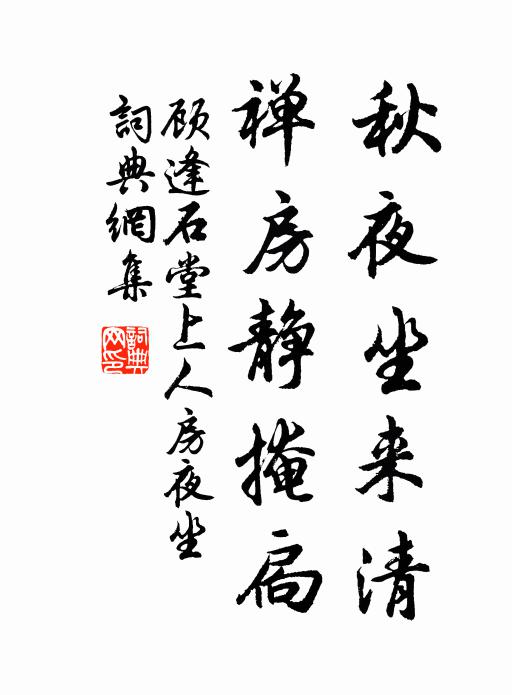 秋夜坐来清
禅房静掩扃
顾逢石堂上人房夜坐
詞典網集
詞典網印